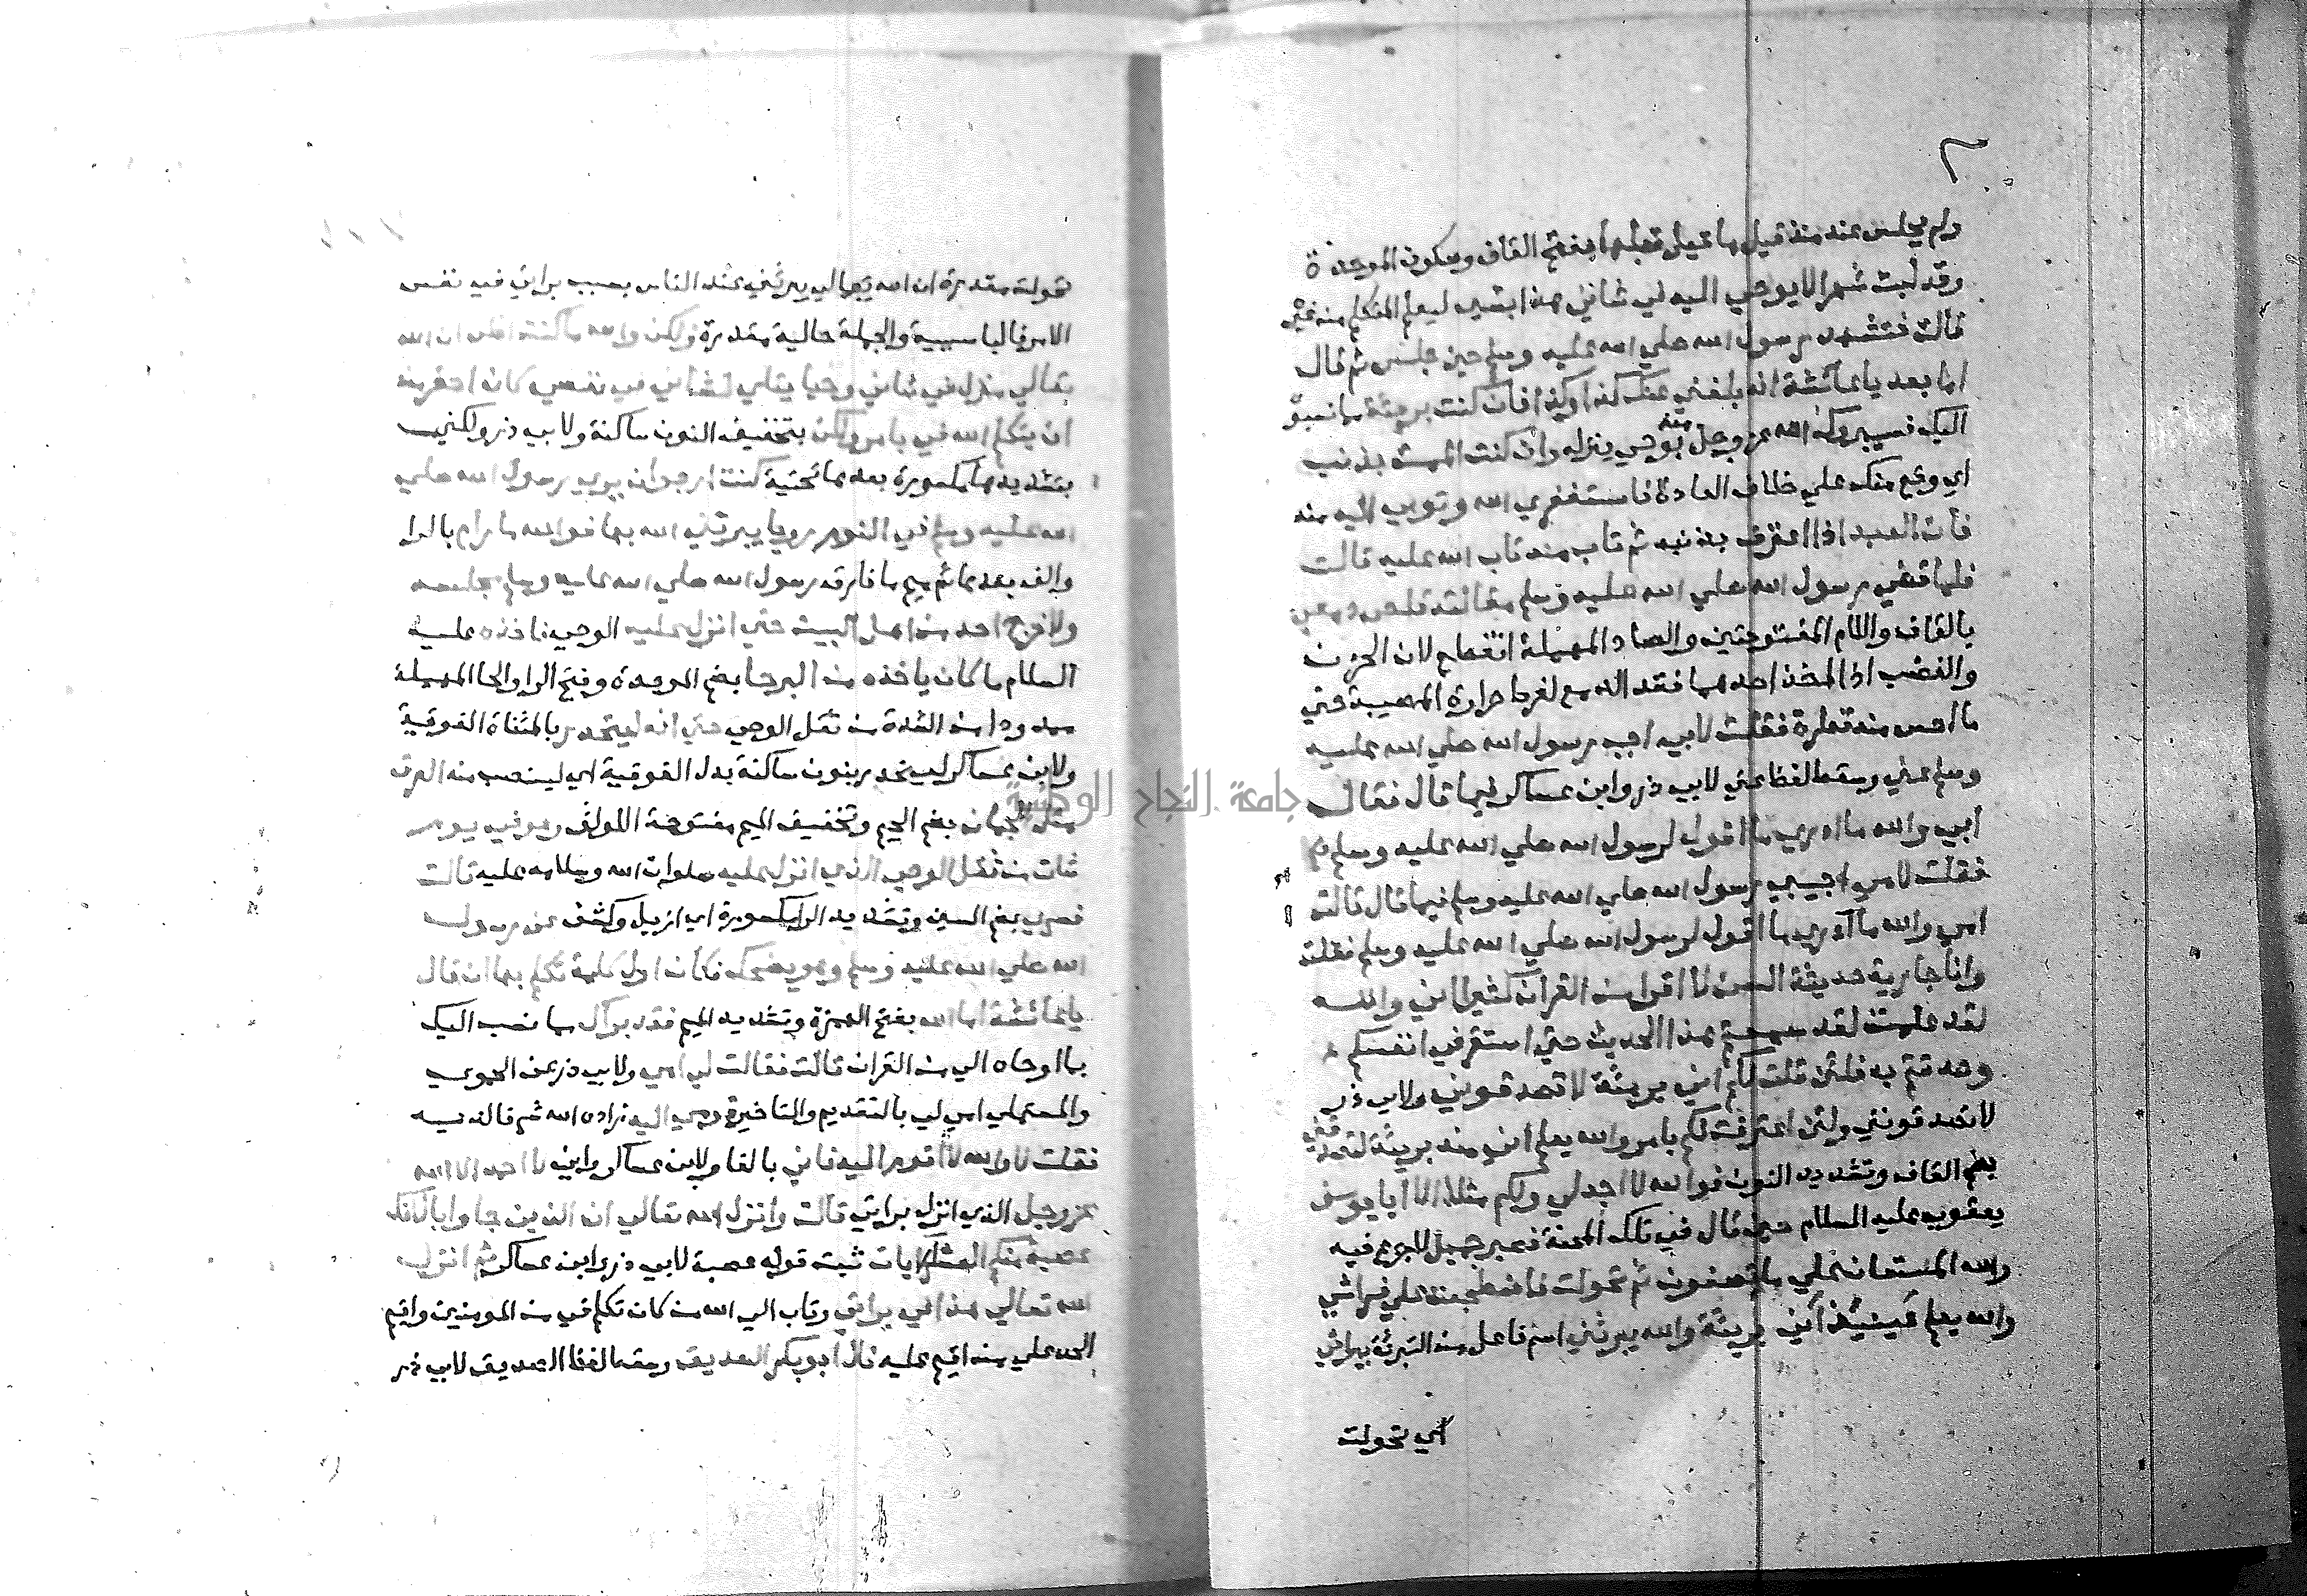 ولم يجلس عند منذ قيل ما قيل قبلها بفتح القاف وسكون الموحدة
وقد لبث شهرا لا يوحي اليه في شاني هذا بشي ليعلم المتكلم من غيره
قالت فتشهد رسول الله صلي الله عليه وسلم حين جلس ثم قال
اما بعد يا عائشة انه بلغني عنك كذا وكذا فان كنت بريئة مما نسبوا
اليك فسيبرئك الله عز وجل منه بوحي ينزله وان كنت الممت بذنب
اي وقع منك علي خلاف العادة فاستغفري الله وتوبي اليه منه
فان العبد اذا اعترف بذنبه ثم تاب منه تاب الله عليه قالت
فلما قضي رسول الله صلي الله عليه وسلم مقالته قلص دمعي
بالقاف واللام المفتوحتين والصاد المهملة انقطع لان الحزن
والغضب اذا اخذ احدهما فقد الدمع لفرط حرارة المصيبة حتي
ما احس منه قطرة فقلت لابي اجب رسول الله صلي الله عليه
وسلم عني وسقط لفظ عني لابي ذر وابن عساكر فيما قال فقال
ابي والله ما ادري ما اقول لرسول الله صلي الله عليه وسلم
فقلت لامي اجيبي رسول الله صلي الله عليه وسلم فيما قال قالت
امي والله ما ادري ما اقول لرسول الله صلي الله عليه وسلم فقلت
وانا جارية حديثة السن لا اقرا من القران كثيرا اني والله
لقد علمت لقد سمعتم هذا الحديث حتي استقر في انفسكم
وصدقتم به فلئن قلت لكم اني بريئة لا تصدقوني ولابي ذر
لا تصدقونني ولئن اعترفت لكم بامر والله يعلم اني منه بريئة لتصدقني
بضم القاف وتشديد النون فوالله لا اجد لي ولكم مثلا الا ابا يوسف
يعقوب عليه السلام حين قال في تلك المحنة فصبر جميل لا جزع فيه
والله المستعان علي ما تصفون ثم تحولت فاضطجعت علي فراشي
والله يعلم حينئذ اني بريئة والله يبرئني اسم فاعل من التبرئة ببراتي
اي تحولت
تحولت مقدرة ان الله تعالي يبرئني عند الناس بسبب براتي في نفس
الامر فالبا سببية والجملة حالية مقدرة ولكن والله ما كنت اظن ان الله
تعالي منزل في شاني وحيا يتلي لشاني في نفسي كان احقر من
ان يتكلم الله في بامر ولكن بتخفيف النون ساكنة ولابي ذر ولكني
بتشديدها مكسورة بعدها تحتية كنت ارجو ان يري رسول الله صلي
الله عليه وسلم في النوم رويا يبرئني الله بها فوالله ما رام بالرا
والف بعدها ثم ميم ما فارقه رسول الله صلي الله عليه وسلم مجلسه
ولا خرج احد من اهل البيت حتي انزل عليه الوحي فاخذه عليه
السلام ما كان ياخذه من البرحا بضم الموحدة وفتح الرا والحا المهملة
ممدودا من الشدة من ثقل الوحي حتي انه ليتحدر بالمثناة الفوقية
ولابن عساكر لينحدر بنون ساكنة بدل الفوقية اي لينصب منه العرق
مثل الجمان بضم الجيم وتخفيف الميم مفتوحة اللولؤ وهو في يوم
شات من ثقل الوحي الذي انزل عليه صلوات الله وسلامه عليه قالت
فسري بضم السين وتشديد الرا مكسورة اي ازيل وكشف عن رسول
الله صلي الله عليه وسلم وهو يضحك فكان اول كلمة تكلم بها ان قال
يا عائشة اما الله بفتح الهمزة وتشديد الميم فقد براك مما نسب اليك
بما اوحاه الي من القران قالت فقالت لي امي ولابي ذر عن الحموي
والمستملي امي لي بالتقديم والتاخير قومي اليه زاده الله
فقلت لا والله لا اقوم اليه فاني بالفا ولابن عساكر واني لا احمد الا الله
عز وجل الذي انزل براتي قالت وانزل الله تعالي ان الذين جاوا بالافك
عصبة منكم العشر الايات ثبت قوله عصبة لابي ذر وابن عساكر ثم انزل
الله تعالي هذا في براتي وتاب الي الله من كان تكلم في من المومنين واقيم
الحد علي من اقيم عليه قال ابو بكر الصديق وسقط لفظ الصديق لابي ذر
جامعة النجاح الوطنية